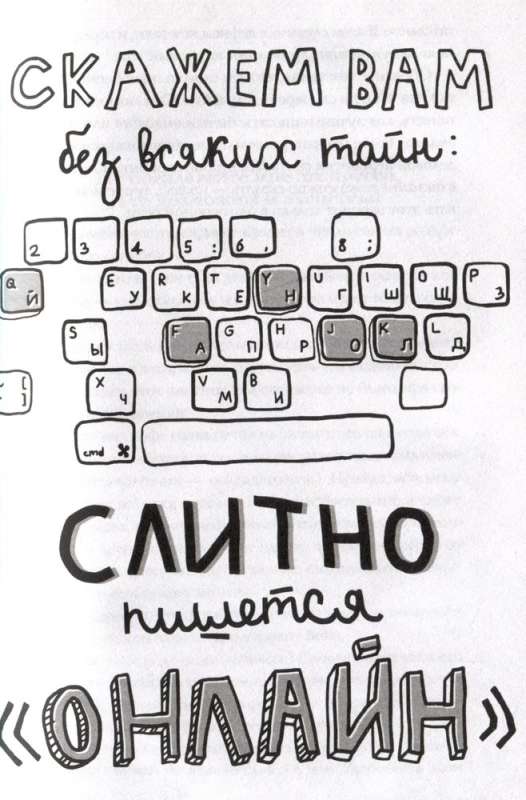 СКАЖЕМ ВАМ
без всяких тайн:
2 3 4 5 : 6 , 8 ;
Q Й E У R К T Е Y Н U Г I Ш O Щ P З
S Ы F А G П H Р J О K Л L Д
{ [ X Ч V М B И
cmd ⌘
СЛИТНО
пишется
«ОНЛАЙН»